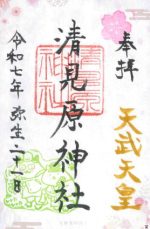 奉拝
天武天皇
清見原神社
令和七年 弥生二十一日